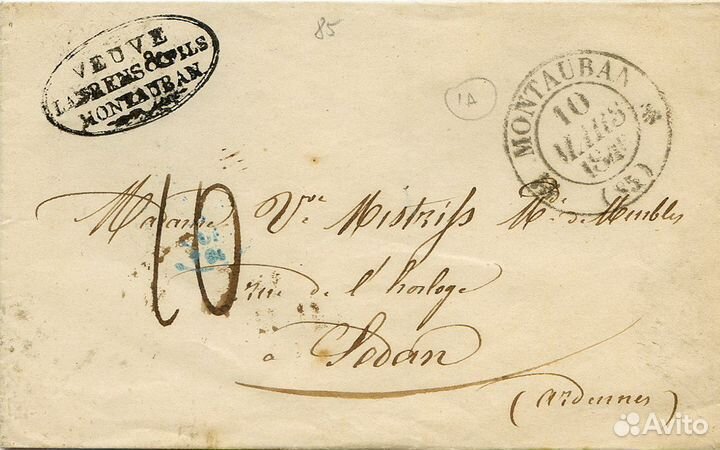 85
VEUVE
LABRENS & FILS
MONTAUBAN
1A
MONTAUBAN
10
MARS
(85)
10
Madame Vve Mistriss Mde de Meubles
rue de l'horloge
à Sedan
(Ardennes)
Avito